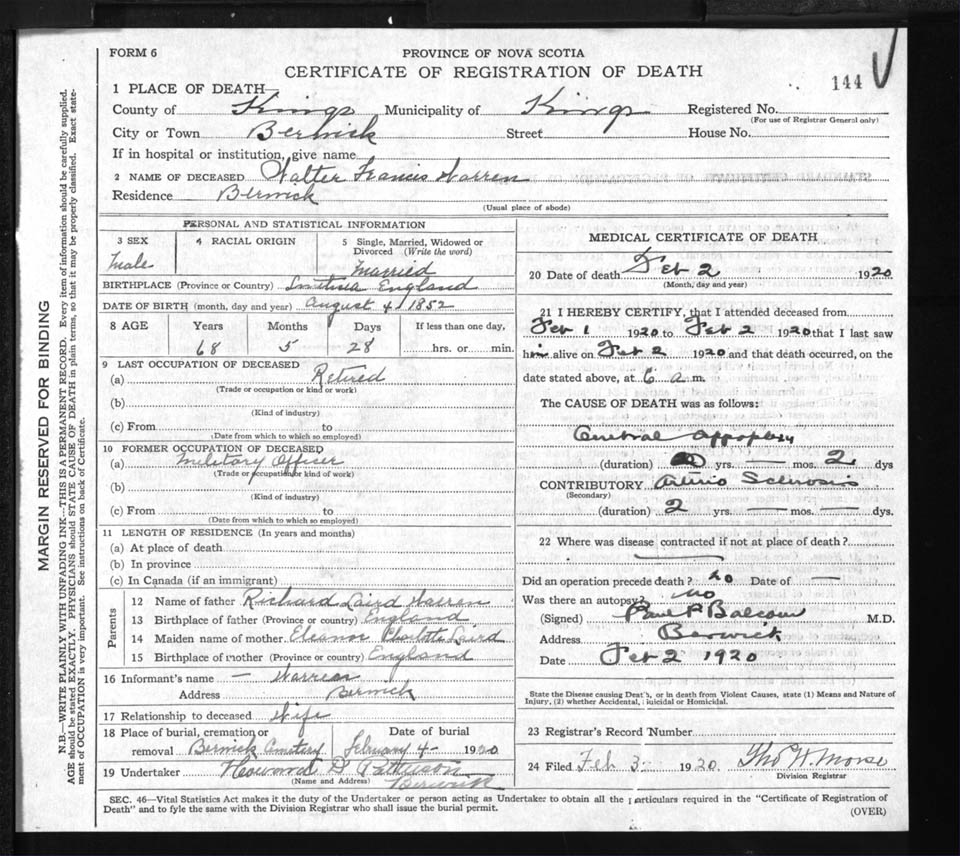 FORM 6
PROVINCE OF NOVA SCOTIA
CERTIFICATE OF REGISTRATION OF DEATH
144
1 PLACE OF DEATH
County of Kings Municipality of Kings Registered No.
(For use of Registrar General only)
City or Town Berwick Street House No.
If in hospital or institution, give name
2 NAME OF DECEASED Walter Francis Warren
Residence Berwick
(Usual place of abode)
PERSONAL AND STATISTICAL INFORMATION
3 SEX 4 RACIAL ORIGIN 5 Single, Married, Widowed or Divorced (Write the word)
Male Married
BIRTHPLACE (Province or Country) England
DATE OF BIRTH (month, day and year) August 4 1852
8 AGE Years Months Days If less than one day,
68 5 28 hrs. or min.
9 LAST OCCUPATION OF DECEASED
(a) Retired
(Trade or occupation or kind or work)
(b)
(Kind of industry)
(c) From to
(Date from which to which so employed)
10 FORMER OCCUPATION OF DECEASED
(a) Military Officer
(Trade or occupation or kind of work)
(b)
(Kind of industry)
(c) From to
(Date from which to which so employed)
11 LENGTH OF RESIDENCE (In years and months)
(a) At place of death
(b) In province
(c) In Canada (if an immigrant)
Parents
12 Name of father Richard Laird Warren
13 Birthplace of father (Province or country) England
14 Maiden name of mother Eleanor Charlotte Laird
15 Birthplace of mother (Province or country) England
16 Informant's name — Warren
Address Berwick
17 Relationship to deceased Wife
18 Place of burial, cremation or removal Date of burial
Berwick Cemetery February 4- 1920
19 Undertaker Howard
(Name and Address) Berwick
MEDICAL CERTIFICATE OF DEATH
20 Date of death Feb 2 1920
(Month, day and year)
21 I HEREBY CERTIFY, that I attended deceased from
Feb 1 1920 to Feb 2 1920 that I last saw
him alive on Feb 2 1920 and that death occurred, on the
date stated above, at 6 a. m.
The CAUSE OF DEATH was as follows:
Cerebral Appoplexy
(duration) yrs. — mos. 2 dys
CONTRIBUTORY Arterio Sclerosis
(Secondary)
(duration) 2 yrs. — mos. — dys.
22 Where was disease contracted if not at place of death?
Did an operation precede death? no Date of —
Was there an autopsy? no
(Signed) Paul P Balcom M.D.
Address Berwick
Date Feb 2 1920
State the Disease causing Death, or in death from Violent Causes, state (1) Means and Nature of
Injury, (2) whether Accidental, Suicidal or Homicidal.
23 Registrar's Record Number
24 Filed Feb 3 1920 Tho W. Morse
Division Registrar
SEC. 46—Vital Statistics Act makes it the duty of the Undertaker or person acting as Undertaker to obtain all the particulars required in the "Certificate of Registration of
Death" and to fyle the same with the Division Registrar who shall issue the burial permit.
(OVER)
MARGIN RESERVED FOR BINDING
N.B.—WRITE PLAINLY WITH UNFADING INK—THIS IS A PERMANENT RECORD. Every item of information should be carefully supplied.
AGE should be stated EXACTLY. PHYSICIANS should STATE CAUSE OF DEATH in plain terms, so that it may be properly classified. Exact state-
ment of OCCUPATION is very important. See instructions on back of Certificate.